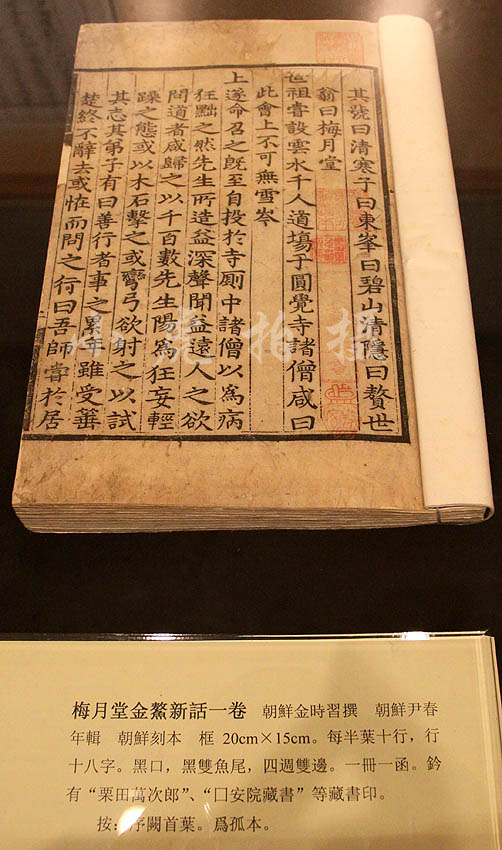 其號曰清寒子曰東峯曰碧山清隱曰贅世
翁曰梅月堂
世祖嘗設雲水千人道場于圓覺寺諸僧咸曰
此會上不可無雪岑
上遂命召之旣至自投於寺厠中諸僧以爲病
狂黜之然先生所造益深聲聞益遠人之欲
問道者咸歸之以千百數先生陽爲狂妄輕
躁之態或以木石擊之或彎弓欲射之以試
其志其弟子有曰善行者事之累年雖受箠
楚終不辭去或恠而問之行曰吾師嘗於居
拍攝
梅月堂金鰲新話一卷 朝鮮金時習撰 朝鮮尹春
年輯 朝鮮刻本 框 20cm×15cm。每半葉十行，行
十八字。黑口，黑雙魚尾，四週雙邊。一冊一函。鈐
有“栗田萬次郎”、“囗安院藏書”等藏書印。
按：序闕首葉。爲孤本。